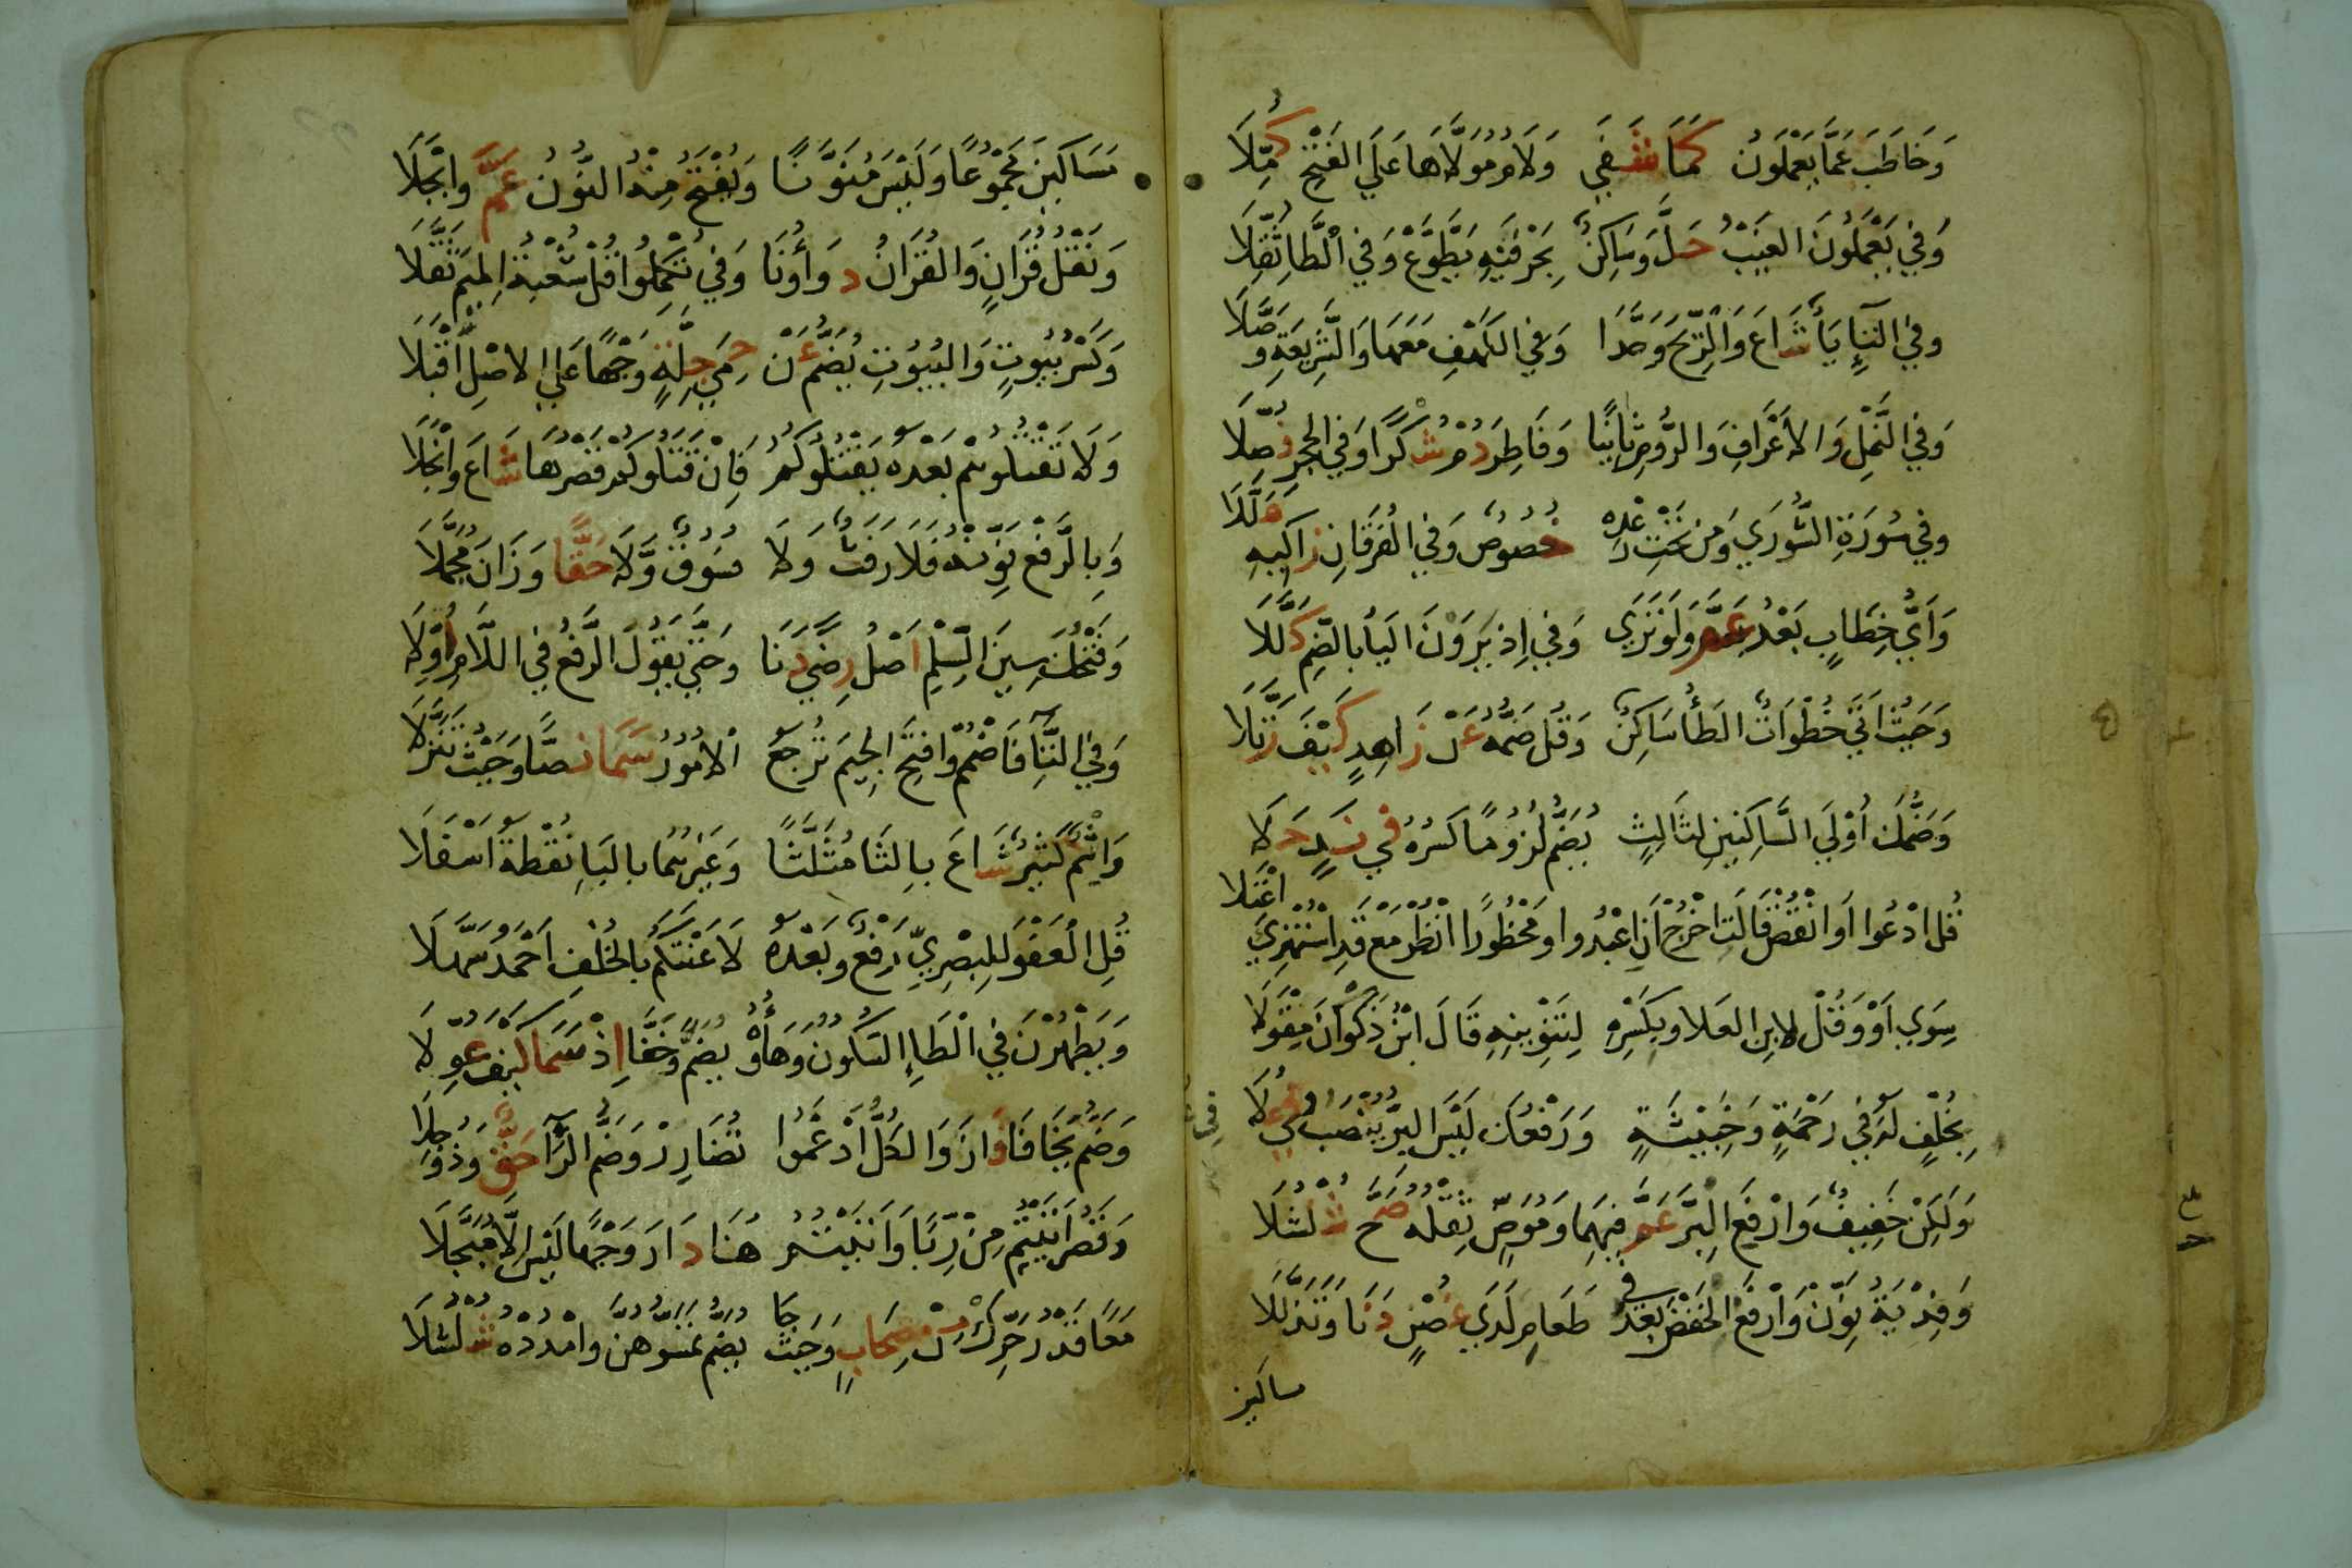 وَخَاطَبَ عَمَّا يَعْمَلُونَ كَمَا شَفَي وَلَامُ مُوَلَّاهَا عَلَي الفَتْحِ كُمِّلَا
وَفِي يَعْمَلُونَ الغَيْبُ حَلَّ وَسَاكِنٌ بِحَرْفَيْهِ يَطَّوَّعْ وَفِي الطَّا ثُقِّلَا
وفي التاءِ يَاءٌ شَاعَ وَالرِّيحَ وَحَّدَا وَفِي الكَهْفِ مَعَهَا وَالشَّرِيعَةِ وَصَّلَا
وَفِي النَّمْلِ وَالأَعْرَافِ وَالرُّومِ ثَانِيًا وَفَاطِرِ دُمْ شُكْرًا وَفِي الحِجْرِ فُصِّلَا
وفي سُورَةِ الشُّورَي وَمِنْ تَحْتِ رَعْدِهِ خُصُوصٌ وَفِي الفُرْقَانِ زَاكِيهِ هَلَّلَا
وَأَيُّ خِطَابٍ بَعْدُ عَمَّ وَلَوْ تَرَي وَفِي إِذ يَرَوْنَ اليَأ بالضَّمِ كُلِّلَا
وَحَيْثُ اتَي خُطْوَاتٌ الطَاُ سَاكِنٌ وَقُل ضَمُّهُ عَن زَاهِدٍ كَيْفَ رَتَّلَا
وَضَمُّكَ أُوْلَي السَّاكِنَيْنِ لِثَالِثٍ يُضَمُّ لُزُومًا كَسْرُهُ في نَدٍ حَلَا
قُل ادْعُوا أَوِ انْقُصْ قَالَتِ اخْرُجْ أَنِ اعْبُدُوا وَمَحْظُورًا انْظُرْ مَعْ قَدِ اسْتُهْزِئَ اعْتَلَا
سِوَي أَوْ وَقُلْ لابنِ العَلا وبِكَسْرِهِ لِتَنْوِينِهِ قَالَ ابْنُ ذَكْوَانَ مِقْوَلَا
بِخُلْفٍ لَهُ فِي رَحْمَةٍ وَخَبِيثَةٍ وَرَفْعُكَ لَيْسَ البِرُّ يُنْصَبُ فِي عُلَا
وَلَكِنْ خَفِيفٌ وَارْفَعِ البِرَّ عَمَّ فِيهِمَا وَمُوَصٍّ ثِقْلُهُ صَحَّ شُلْشُلَا
وَفِدْيَةُ نَوِّنْ وَارْفَعِ الخَفْضَ بَعْدُ في طَعَامِ لَدَي غُصْنٍ دَنَا وَتَذَلَّلَا
مساكين
مَسَاكِينَ مَجْمُوعًا وَلَيْسَ مُنَوَّنًا وَيُفْتَحُ مِنْهُ النُّونُ عَمَّ وأَبْجَلَا
وَنَقْلُ قُرَانٍ وَالقُرَانُ دَوَاؤُنَا وَفِي تُكْمِلُوا قُلْ شُعْبَةُ المِيمَ ثَقَّلَا
وَكَسْرُ بُيُوتٍ وَالبُيُوتِ يُضَمُّ عَنْ حِمَي جِلَّةٍ وَجْهًا عَلَي الاصْلِ أَقْبَلَا
وَلَا تَقْتُلُوهُمْ بَعْدَهُ يَقْتُلُوكُمُ فَإِنْ قَتَلُوكُمْ قَصْرُهَا شَاعَ وَانْجَلَا
وَبِالرَّفْعِ نَوِّنْهُ فَلَا رَفَثٌ وَلَا فُسُوقٌ وَّلَا حَقًّا وَزَانَ مُجَمَّلَا
وَفَتْحُكَ سِينَ السِّلْمِ أَصْلُ رِضًي دَنَا وَحَتَّي يَقُولَ الرَّفْعُ فِي اللَّامِ أُوِّلَا
وَفِي التَّاءِ فَاضْمُمْ وَافتَحِ الجِيمَ تَرْجِعُ الامُورُ سَمَا نَصًّا وَحَيْثُ تَنَزَّلَا
وَإِثْمٌ كَثِيرٌ شَاعَ بِالثَّا مُثَلَّثًا وَغَيْرُهُمَا بالبَاءِ نُقْطَةٌ اسْفَلَا
قُلِ العَفْوَ لِلبَصْرِيِّ رَفْعٌ وَبَعْدَهُ لَاعْنَتَكُمْ بِالخُلْفِ احْمَدُ سَهَّلَا
وَيَطْهُرْنَ فِي الطَاءِ السُّكُونُ وَهَاؤُهُ يُضَمُّ وَخَفَّا إِذْ سَمَا كَيْفَ عُوِّلَا
وَضَمُّ يَخَافَا فَازَ وَالكُلُّ ادْغَمُوا تُضَارِرْ وَضَمَّ الرَّاءَ حَقٌّ وَذُو جِلَا
وَقَصْرُ أَتَيْتُمْ مِنْ رِّبًا وَأَتَيْتُمُو هُنَا دَارَ وَجْهًا لَيْسَ إِلَّا مُبَجَّلَا
مَعًا قَدْرُ حَرِّكْ مِن صِحَابٍ وَحَيْثُ جَا يُضَمُّ تَمَسُّوهُنَّ وَامْدُدْهُ شُلْشُلَا